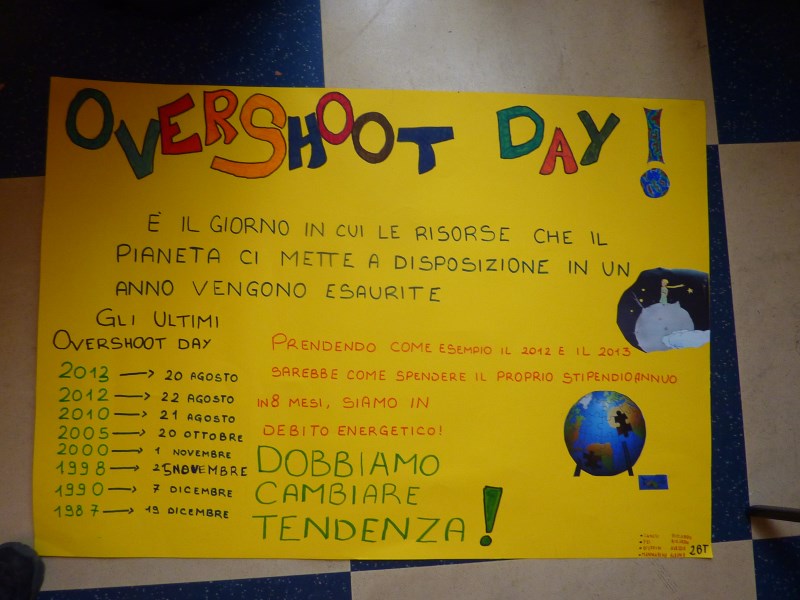 OVERSHOOT DAY!
È IL GIORNO IN CUI LE RISORSE CHE IL
PIANETA CI METTE A DISPOSIZIONE IN UN
ANNO VENGONO ESAURITE
GLI ULTIMI
OVERSHOOT DAY
2013 → 20 AGOSTO
2012 → 22 AGOSTO
2010 → 21 AGOSTO
2005 → 20 OTTOBRE
2000 → 1 NOVEMBRE
1998 → 25 NOVEMBRE
1990 → 7 DICEMBRE
1987 → 19 DICEMBRE
PRENDENDO COME ESEMPIO IL 2012 E IL 2013
SAREBBE COME SPENDERE IL PROPRIO STIPENDIO ANNUO
IN 8 MESI, SIAMO IN
DEBITO ENERGETICO!
DOBBIAMO
CAMBIARE
TENDENZA!
2BT